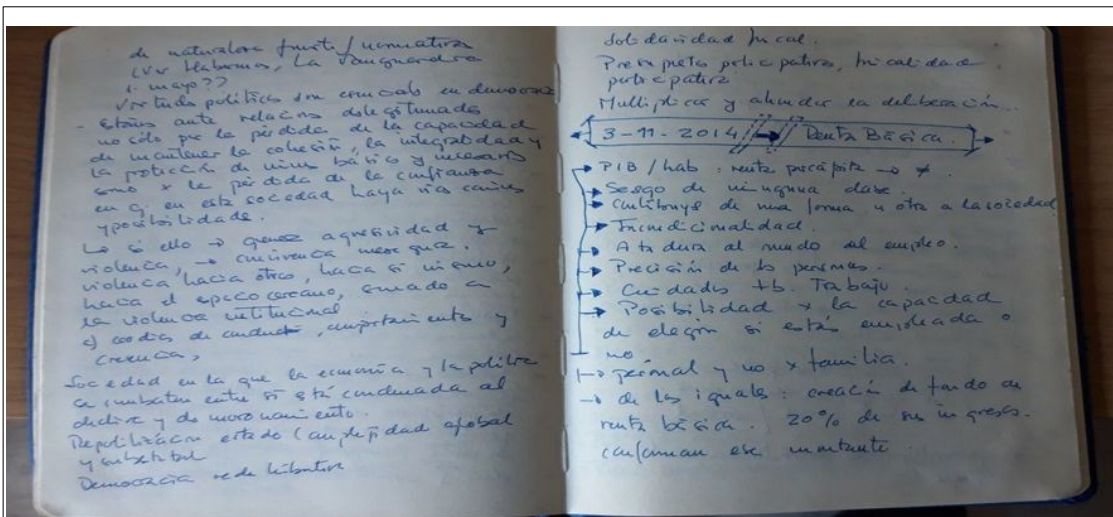 de naturaleza fuerte / normativa
(ver Habermas, La Vanguardia
1. mayo??
Virtudes políticas son cruciales en democracia
- Estamos ante relacions deslegitimadas
no sólo por la pérdida de la capacidad
de mantener la cohesión, la integralidad y
la protección de niveles básicos y necesarios
sino x la pérdida de la confianza
en q. en esta sociedad haya más caminos
y posibilidades.
↳ si ello → genera agresividad y
violencia, → convivencia
violencia hacia otros, hacia si mismo,
hacia el espacio cercano, sumado a
la violencia institucional
c) de conducta, comportamiento y
creencias,
Sociedad en la que la economía y la política
se combaten entre sí está condenada al
declive y desmoronamiento.
Repolitización estado (complejidad global
y subestatal
Democracia redistributiva
Solidaridad fiscal.
Presupuestos participativos, fiscalidad
participativa
Multiplicar y ahondar en deliberación.
3-11-2014 → Renta Básica.
→ PIB / hab : renta per cápita → ≠.
→ Sesgo de ninguna clase.
→ Contribuye de una forma u otra a la sociedad
→ Incondicionalidad.
→ Atadura al mundo del empleo.
→ de las personas.
→ Cuidados tb. Trabajo.
→ Posibilidad x la capacidad
de elegir si estás empleada o
no.
→ personal y no x familia.
→ de los iguales : creación de fondo de
renta básica. 20% de sus ingresos.
conforman ese montante.